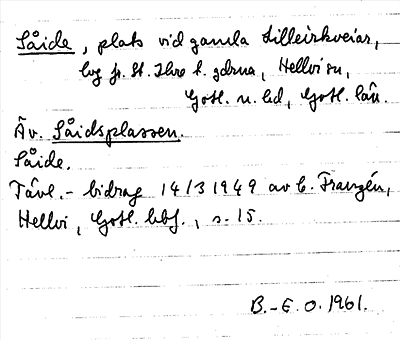 Såide, plats vid gamla Lilleirkveiar,
lvg fr. St. Ihre t. gdrna, Hellvi sn,
Gotl. n. hd, Gotl. län.
Äv. Såidsplassen.
Såide.
Tävl.- bidrag 14/3 1949 av E. Franzén,
Hellvi, Gotl. hbf., s. 15.
B.-E. O. 1961.